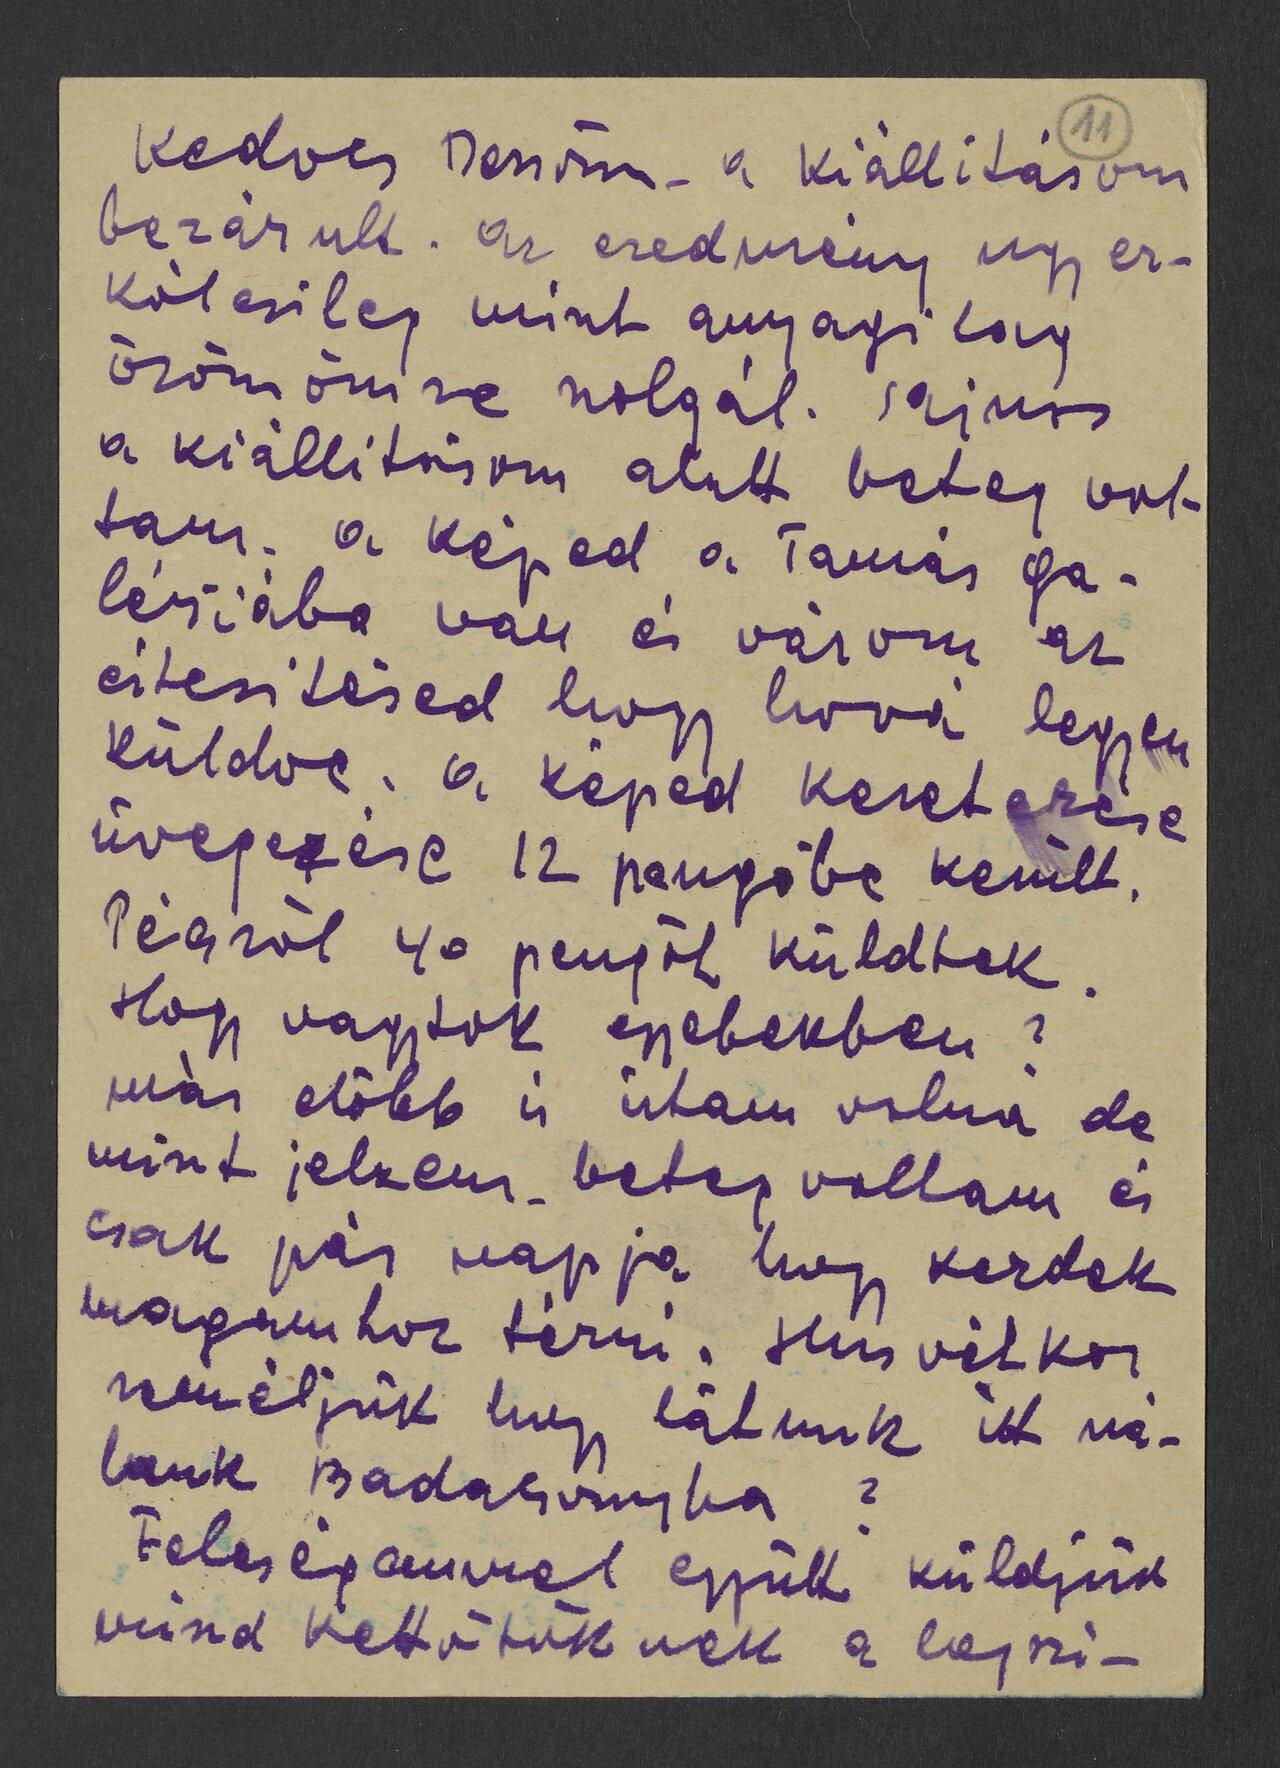 11
Kedves Dezsőm - a kiállitásom
bezárult. az eredmény ugy er-
kölcsileg mint anyagilag
örömömre szolgál. sajnos
a kiállitásom alatt beteg vol-
tam. a képed a Tamás ga-
lériába van és várom az
értesitésed hogy hová legyen
küldve. a képed keretezése
üvegezése 12 pengőbe került.
40 pengőt küldtek.
Hogy vagytok egyebekben?
már előbb is irtam volna de
mint jelzem - beteg voltam és
csak pár napja hogy kezdek
magamhoz térni. Husvétkor
reméljük hogy látunk itt ná-
lunk Badacsonyba ?
Feleségemmel együtt küldjük
mind kettőtöknek a legszi-